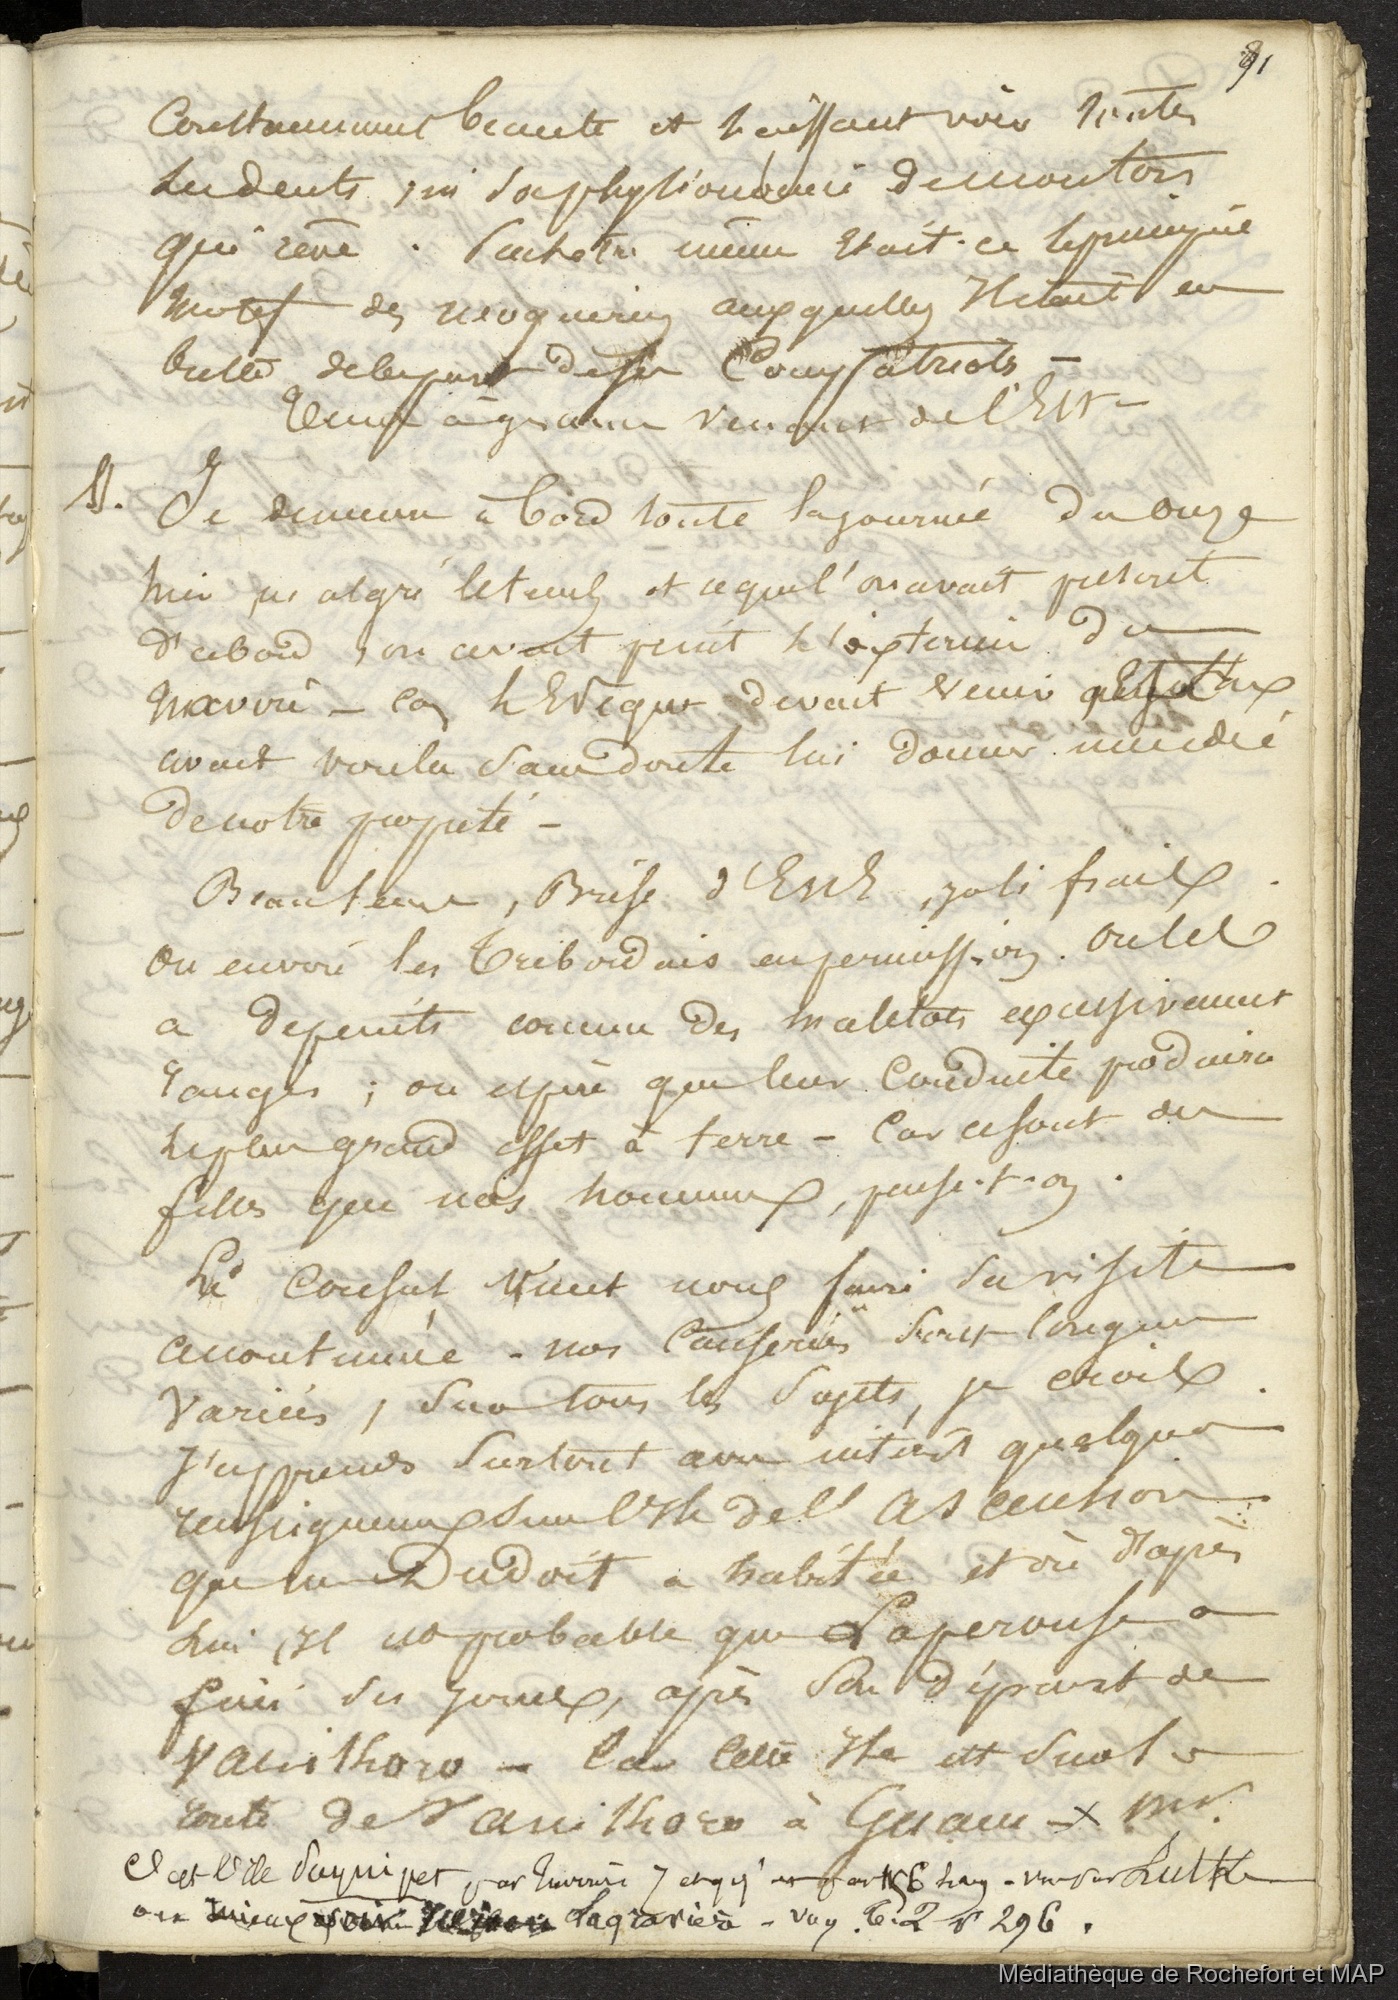 91
Constamment beante et laissant voir toutes
les dents, ni sa physionomie de mouton
qui rêve. Peut être même était-ce le principe
motif des moqueries auxquelles il était en
butte de la part de ses Compatriotes -
Temps à grains venant de l'Est -
11. Je demeure à bord toute la journée du onze
malgré le temps et ce que l'on avait
d'abord, on avait peint l'extérieur du
navire - Car l'Evêque devait venir
avait voulu sans doute lui donner une idée
de notre propreté -
Beau temps, Brise d'ENE, joli frais.
On envoie les Tribordais en permission. On les
a depeints comme des matelots excessivement
rangés ; on espère que leur Conduite produira
le plus grand effet à terre - Car ce sont des
filles que nos hommes, pense-t-on.
Le Consul vient nous faire sa visite
accoutumée - nos Causeries sont longues
Variées, sur tous les sujets, je crois.
J'apprends surtout avec intérêt quelques
renseignemens sur l'Ile de l'Ascension
que Mr Dudoit a habitée et où d'après
lui, il est probable que Laperouse a
fini ses jours, après son départ de
Vanikoro - Car cette Ile est sur la
route de Vanikoro à Guam -x Mr
C'est l'île Puynipet, par 7 et par 156 - Lutke
ou Lagravière - voy. t. 2 p 296.
Médiathèque de Rochefort et MAP